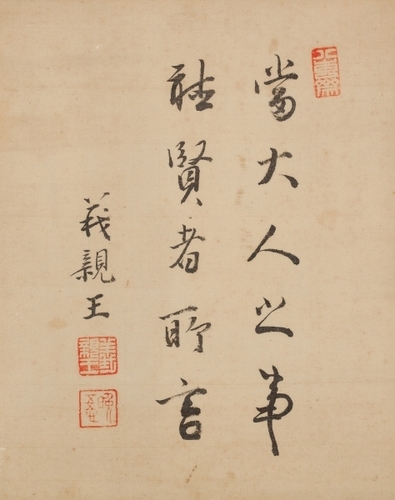 當大人之事
聴賢者所言
義親王